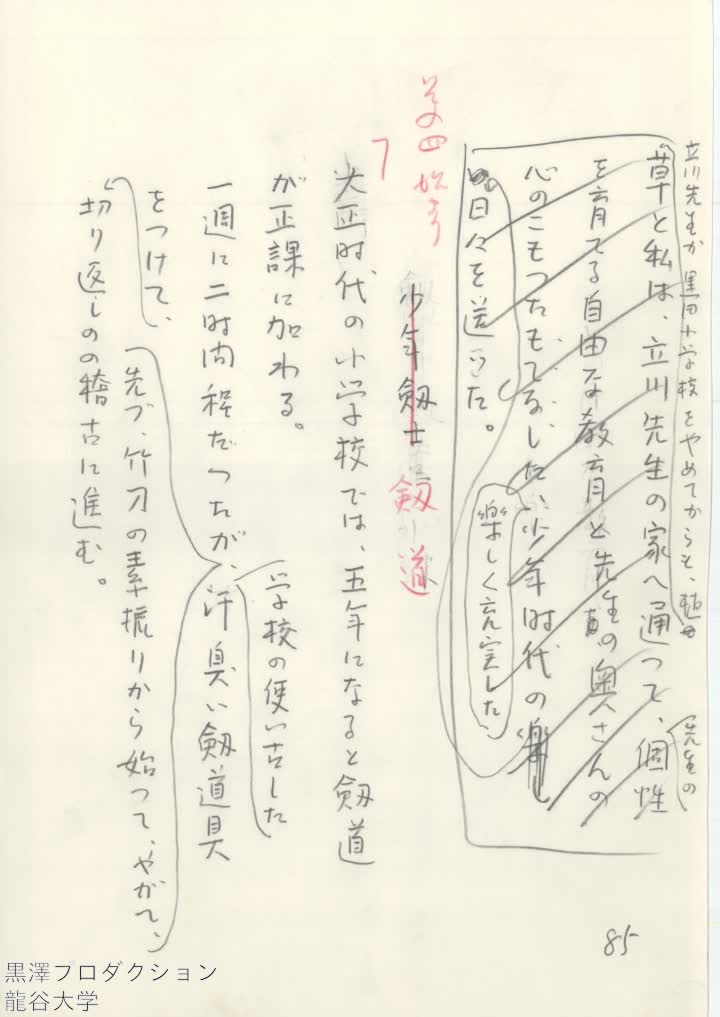 立川先生が黒田小学校をやめてからも、植草と私は、立川先生の家へ通つて、先生の個性
を育てる自由な教育と先生の奥さんの
心のこもつたもてなしたい少年時代の楽し
楽しく充実した
日々を送つた。
少年剣士 剱道
大正时代の小学校では、五年になると剱道
が正課に加わる。
一週に二时间程だつたが、学校の使い古した
汗臭い剱道具
をつけて、
先づ、竹刀の素振りから始つて、やがて、
切り返しのの稽古に進む。
85
黒澤プロダクション
龍谷大学